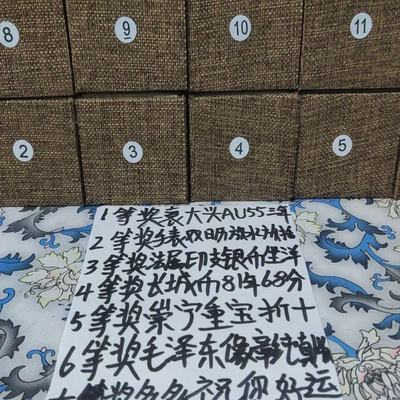 8 9 10 11
2 3 4 5
1等奖袁大头AU55三年
2等奖手表双日历
3等奖法属印支银币坐洋
4等奖长城币81年68分
5等奖崇宁重宝折十
6等奖毛泽东像章纯
等奖多多祝你好运